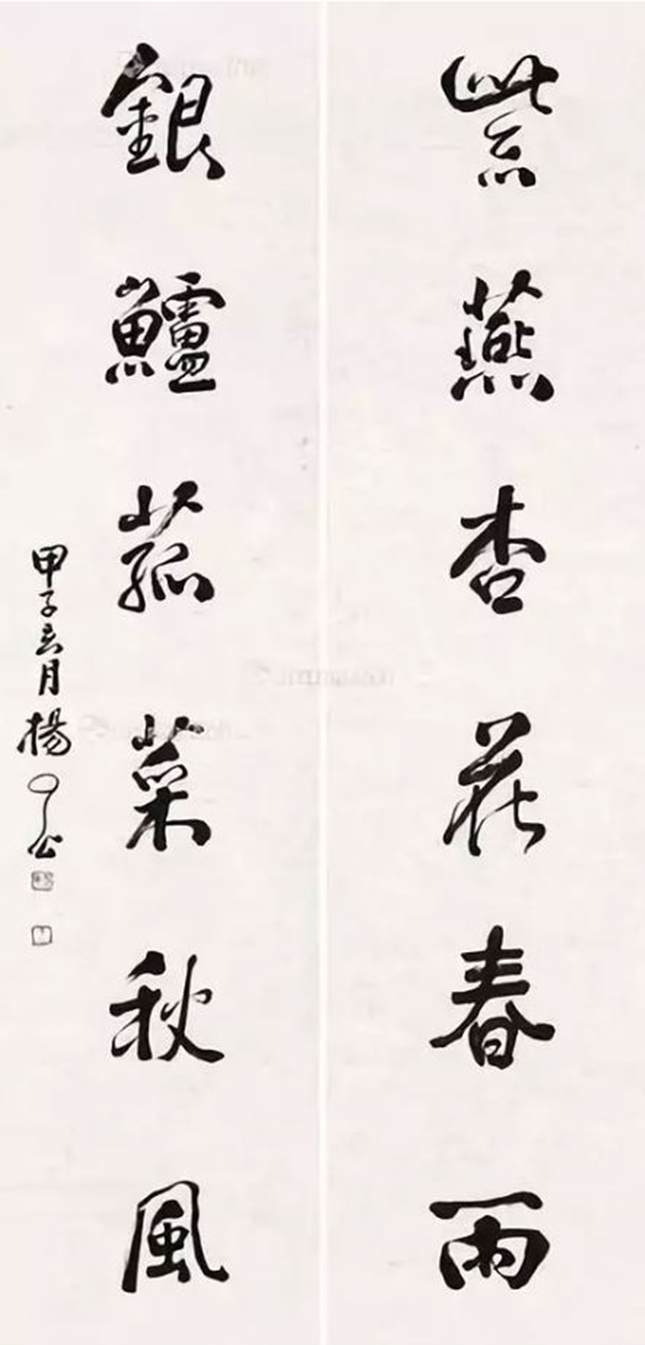 紫燕杏花春雨
銀鱸菰菜秋風
甲子亥月楊